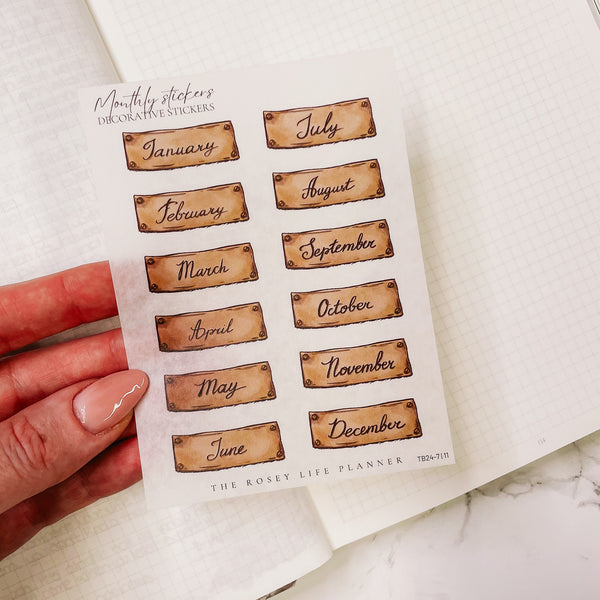 Monthly stickers
DECORATIVE STICKERS
January
February
March
April
May
June
July
August
September
October
November
December
THE ROSEY LIFE PLANNER
TB24-7|11